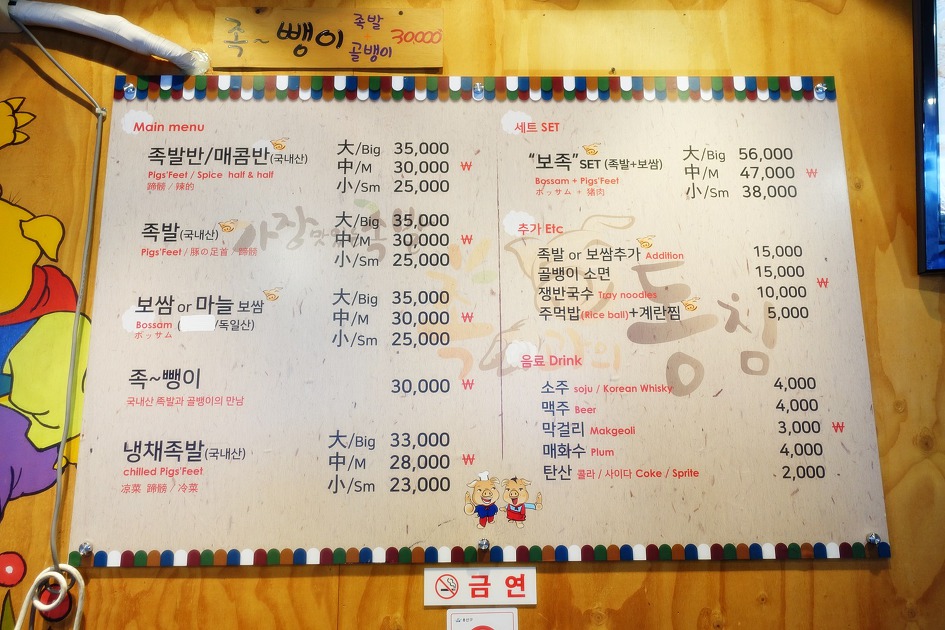 족~뺑이 족발 골뱅이 30,000
Main menu
족발반/매콤반(국내산)
Pigs'Feet / Spice half & half
蹄髈 / 辣的
大/Big 35,000
中/M 30,000 ₩
小/Sm 25,000
족발(국내산)
Pigs'Feet / 豚の足首 / 蹄髈
大/Big 35,000
中/M 30,000 ₩
小/Sm 25,000
보쌈 or 마늘 보쌈
Bossam ( /독일산)
ボッサム
大/Big 35,000
中/M 30,000 ₩
小/Sm 25,000
족~뺑이
국내산 족발과 골뱅이의 만남
30,000 ₩
냉채족발(국내산)
chilled Pigs'Feet
凉菜 蹄髈 / 冷菜
大/Big 33,000
中/M 28,000 ₩
小/Sm 23,000
세트 SET
"보족"SET (족발+보쌈)
Bossam + Pigs'Feet
ボッサム + 猪肉
大/Big 56,000
中/M 47,000 ₩
小/Sm 38,000
추가 Etc
족발 or 보쌈추가 Addition 15,000
골뱅이 소면 15,000
쟁반국수 Tray noodles 10,000 ₩
주먹밥(Rice ball)+계란찜 5,000
음료 Drink
소주 soju / Korean Whisky 4,000
맥주 Beer 4,000
막걸리 Makgeoli 3,000 ₩
매화수 Plum 4,000
탄산 콜라 / 사이다 Coke / Sprite 2,000
금연